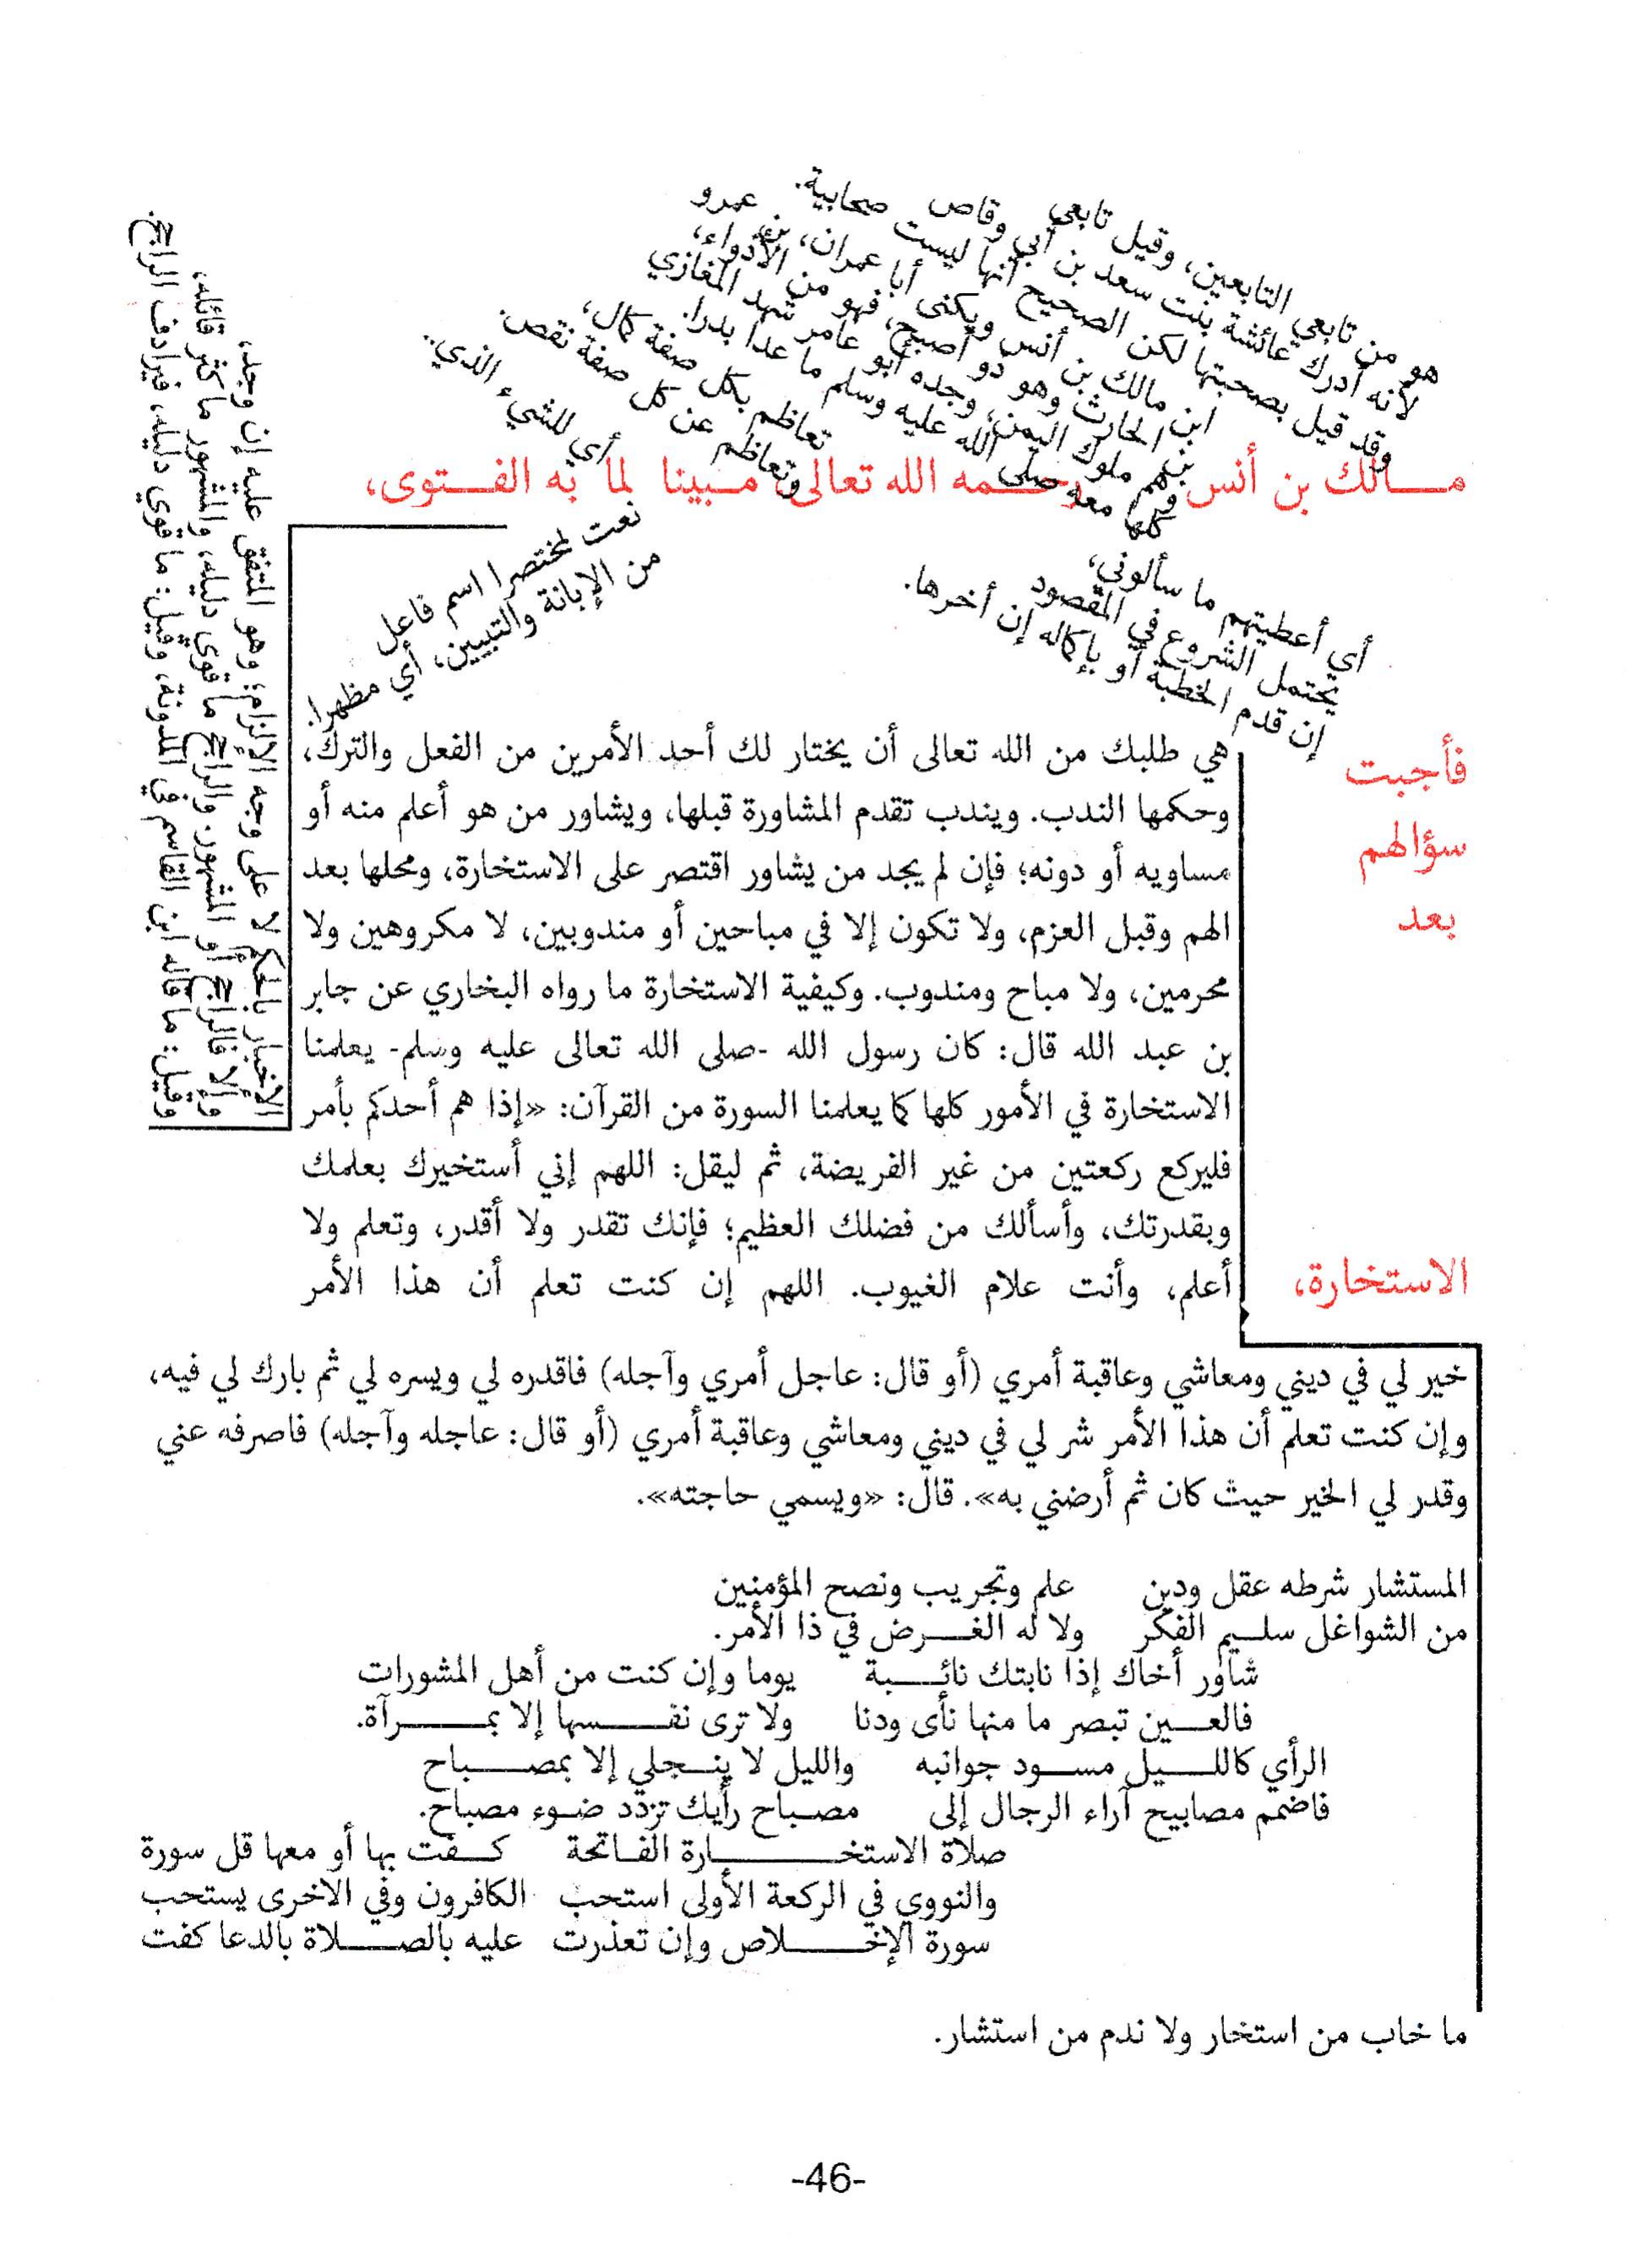 هو من تابعي التابعين، وقيل تابعي
لأنه أدرك عائشة بنت سعد بن أبي وقاص
وقد قيل بصحبتها لكن الصحيح أنها ليست صحابية.
ابن مالك بن أنس ويكنى أبا عمران، بن عمرو
بن الحارث وهو ذو أصبح، فهو من الأذواء،
وهم ملوك اليمن، وجده أبو عامر شهد المغازي
كلها معه صلى الله عليه وسلم ما عدا بدرا.
تعاظم بكل صفة كمال،
وتعاظم عن كل صفة نقص.
أي للشيء الذي..
مـــالك بن أنس رحـــمه الله تعالى مـــبينا لما به الفـــتوى،
نعت لمختصرا اسم فاعل
من الإبانة والتبيين، أي مظهرا.
الإخبار بالحكم لا على وجه الإلزام؛ وهو المتفق عليه إن وجد،
وإلا فالراجح أو المشهور. والراجح ما قوي دليله، والمشهور ما كثر قائله،
وقيل: ما قاله ابن القاسم في المدونة، وقيل: ما قوي دليله، فيرادف الراجح.
أي أعطيتهم ما سألوني؛
يحتمل الشروع في المقصود
إن قدم الخطبة أو بإكماله إن أخرها.
فأجبت
سؤالهم
بعد
الاستخارة،
هي طلبك من الله تعالى أن يختار لك أحد الأمرين من الفعل والترك،
وحكمها الندب. ويندب تقدم المشاورة قبلها، ويشاور من هو أعلم منه أو
مساويه أو دونه؛ فإن لم يجد من يشاور اقتصر على الاستخارة، ومحلها بعد
الهم وقبل العزم، ولا تكون إلا في مباحين أو مندوبين، لا مكروهين ولا
محرمين، ولا مباح ومندوب. وكيفية الاستخارة ما رواه البخاري عن جابر
بن عبد الله قال: كان رسول الله -صلى الله تعالى عليه وسلم- يعلمنا
الاستخارة في الأمور كلها كما يعلمنا السورة من القرآن: «إذا هم أحدكم بأمر
فليركع ركعتين من غير الفريضة، ثم ليقل: اللهم إني أستخيرك بعلمك
وبقدرتك، وأسألك من فضلك العظيم؛ فإنك تقدر ولا أقدر، وتعلم ولا
أعلم، وأنت علام الغيوب. اللهم إن كنت تعلم أن هذا الأمر
خير لي في ديني ومعاشي وعاقبة أمري (أو قال: عاجل أمري وآجله) فاقدره لي ويسره لي ثم بارك لي فيه،
وإن كنت تعلم أن هذا الأمر شر لي في ديني ومعاشي وعاقبة أمري (أو قال: عاجله وآجله) فاصرفه عني
وقدر لي الخير حيث كان ثم أرضني به». قال: «ويسمي حاجته».
المستشار شرطه عقل ودين علم وتجريب ونصح المؤمنين
من الشواغل سلـــيم الفكر ولا له الغـــرض في ذا الأمر.
شاور أخاك إذا نابتك نائـــبة يوما وإن كنت من أهل المشورات
فالعـــين تبصر ما منها نأى ودنا ولا ترى نفـــسها إلا بمـــرآة.
الرأي كاللـــيل مســـود جوانبه والليل لا ينـــجلي إلا بمصـــباح
فاضمم مصابيح آراء الرجال إلى مصـــباح رأيك تزدد ضـــوء مصباح.
صلاة الاستخـــارة الفـــاتحة كـــفت بها أو معها قل سورة
والنووي في الركعة الأولى استحب الكافرون وفي الاخرى يستحب
سورة الإخـــلاص وإن تعذرت عليه بالصـــلاة بالدعا كفت
ما خاب من استخار ولا ندم من استشار.
-46-